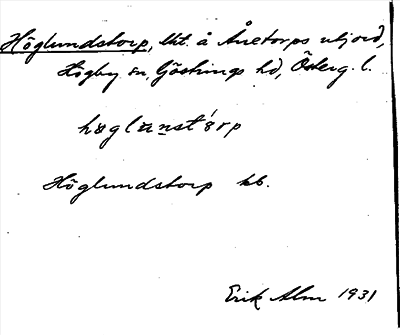 Höglundstorp, lht. å Ånetorps utjord,
Högby sn, Göstrings hd, Österg. l.
høglunst`órp
Höglundstorp kb.
Erik Alm 1931